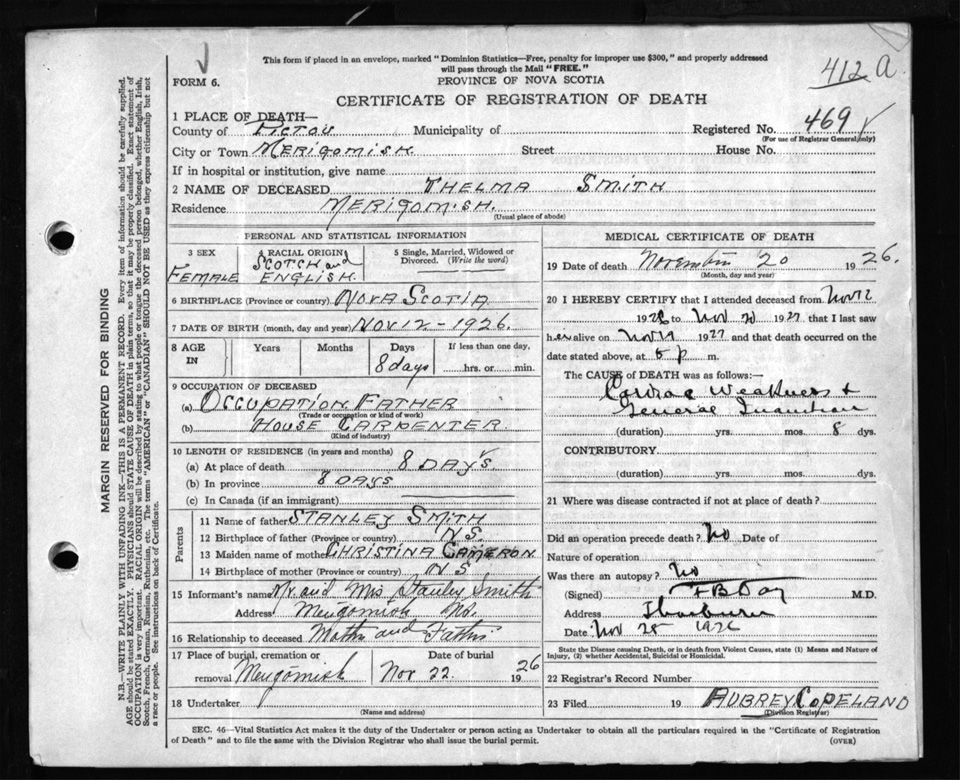 This form if placed in an envelope, marked "Dominion Statistics—Free, penalty for improper use $300," and properly addressed
will pass through the Mail "FREE."
412 a
FORM 6.
PROVINCE OF NOVA SCOTIA
CERTIFICATE OF REGISTRATION OF DEATH
1 PLACE OF DEATH—
County of PICTOU Municipality of Registered No. 469
(For use of Registrar General only)
City or Town MERIGOMISH Street House No.
If in hospital or institution, give name
2 NAME OF DECEASED THELMA SMITH
Residence MERIGOMISH.
(Usual place of abode)
PERSONAL AND STATISTICAL INFORMATION
3 SEX FEMALE
4 RACIAL ORIGIN SCOTCH and ENGLISH.
5 Single, Married, Widowed or Divorced. (Write the word)
6 BIRTHPLACE (Province or country) NOVA SCOTIA
7 DATE OF BIRTH (month, day and year) NOV 12 - 1926.
8 AGE IN Years Months Days 8 days If less than one day, hrs. or min.
9 OCCUPATION OF DECEASED
(a) OCCUPATION FATHER
(Trade or occupation or kind of work)
(b) HOUSE CARPENTER.
(Kind of industry)
10 LENGTH OF RESIDENCE (in years and months)
(a) At place of death 8 DAYS.
(b) In province 8 DAYS
(c) In Canada (if an immigrant)
Parents
11 Name of father STANLEY SMITH
12 Birthplace of father (Province or country) N.S.
13 Maiden name of mother CHRISTINA CAMERON
14 Birthplace of mother (Province or country) N S
15 Informant's name Mr. and Mrs Stanley Smith
Address Merigomish NS.
16 Relationship to deceased Mother and Father
17 Place of burial, cremation or removal Merigomish Date of burial Nov 22. 1926
18 Undertaker
(Name and address)
MEDICAL CERTIFICATE OF DEATH
19 Date of death November 20 1926.
(Month, day and year)
20 I HEREBY CERTIFY that I attended deceased from Nov 12
1926 to Nov 20 1927 that I last saw
her alive on Nov 19 1927 and that death occurred on the
date stated above, at 8 p m.
The CAUSE OF DEATH was as follows:—
Cardiac Weakness &
General Inanition
(duration) yrs. mos. 8 dys.
CONTRIBUTORY
(duration) yrs. mos. dys.
21 Where was disease contracted if not at place of death?
Did an operation precede death? No Date of
Nature of operation
Was there an autopsy? No
(Signed) F B Day M.D.
Address Thorburn
Date Nov 25 1926
State the Disease causing Death, or in death from Violent Causes, state (1) Means and Nature of
Injury, (2) whether Accidental, Suicidal or Homicidal.
22 Registrar's Record Number
23 Filed 19 AUBREY COPELAND
(Division Registrar)
SEC. 46—Vital Statistics Act makes it the duty of the Undertaker or person acting as Undertaker to obtain all the particulars required in the "Certificate of Registration
of Death" and to file the same with the Division Registrar who shall issue the burial permit. (OVER)
MARGIN RESERVED FOR BINDING
N.B.—WRITE PLAINLY WITH UNFADING INK—THIS IS A PERMANENT RECORD. Every item of information should be carefully supplied.
AGE should be stated EXACTLY. PHYSICIANS should STATE CAUSE OF DEATH in plain terms, so that it may be properly classified. Exact statement of
OCCUPATION is very important. RACIAL ORIGIN will be described by stating to what people or tongue the deceased person belonged, whether English, Irish,
Scotch, French, German, Russian, Ruthenian, etc. The terms "AMERICAN" or "CANADIAN" SHOULD NOT BE USED as they express citizenship but not
a race or people. See instructions on back of Certificate.